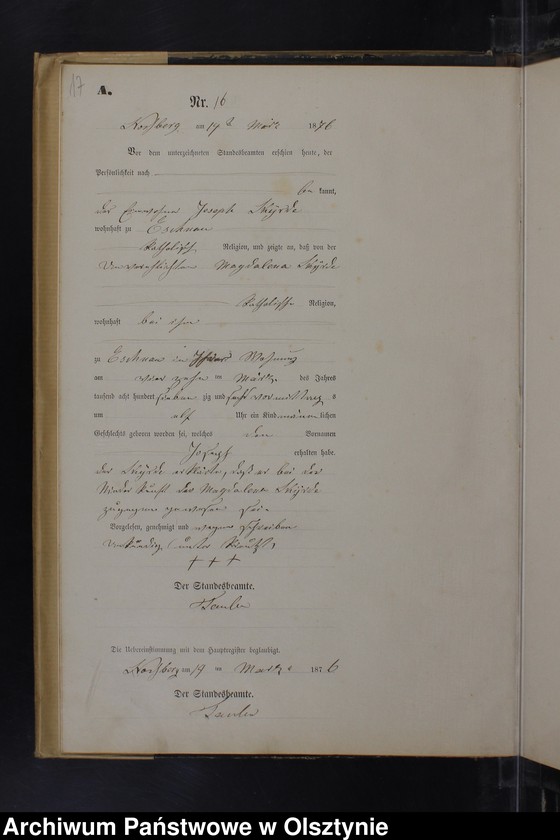 17
A.
Nr. 16
am 19 t März 1876
Vor dem unterzeichneten Standesbeamten erschien heute, der
Persönlichkeit nach
be kannt,
der Einwohner Joseph
wohnhaft zu Eschnau
katholischer Religion, und zeigte an, daß von der
unverehelichten Magdalena
katholischer Religion,
wohnhaft bei ihm
zu Eschnau in Wohnung
am vier zehn ten März des Jahres
tausend acht hundert sieben zig und sechs vormittags
um elf Uhr ein Kind männ lichen
Geschlechts geboren worden sei, welches den Vornamen
Joseph erhalten habe.
der erklärte, daß er bei der
Niederkunft der Magdalena
zugegen gewesen sei
Vorgelesen, genehmigt und wegen Schreibens
unter
+ + +
Der Standesbeamte.
Die Uebereinstimmung mit dem Hauptregister beglaubigt.
am 19 ten März 1876
Der Standesbeamte.
Archiwum Państwowe w Olsztynie